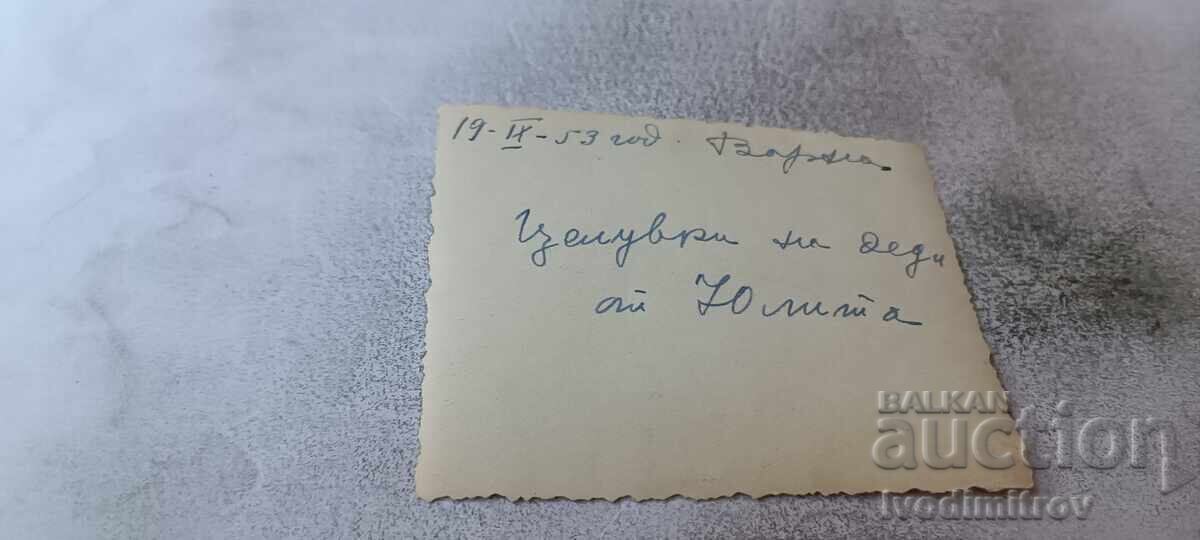 19-IX-53 год. Варна
Целувки на деди
от Юлита
BALKAN
auction
ivodimitrov